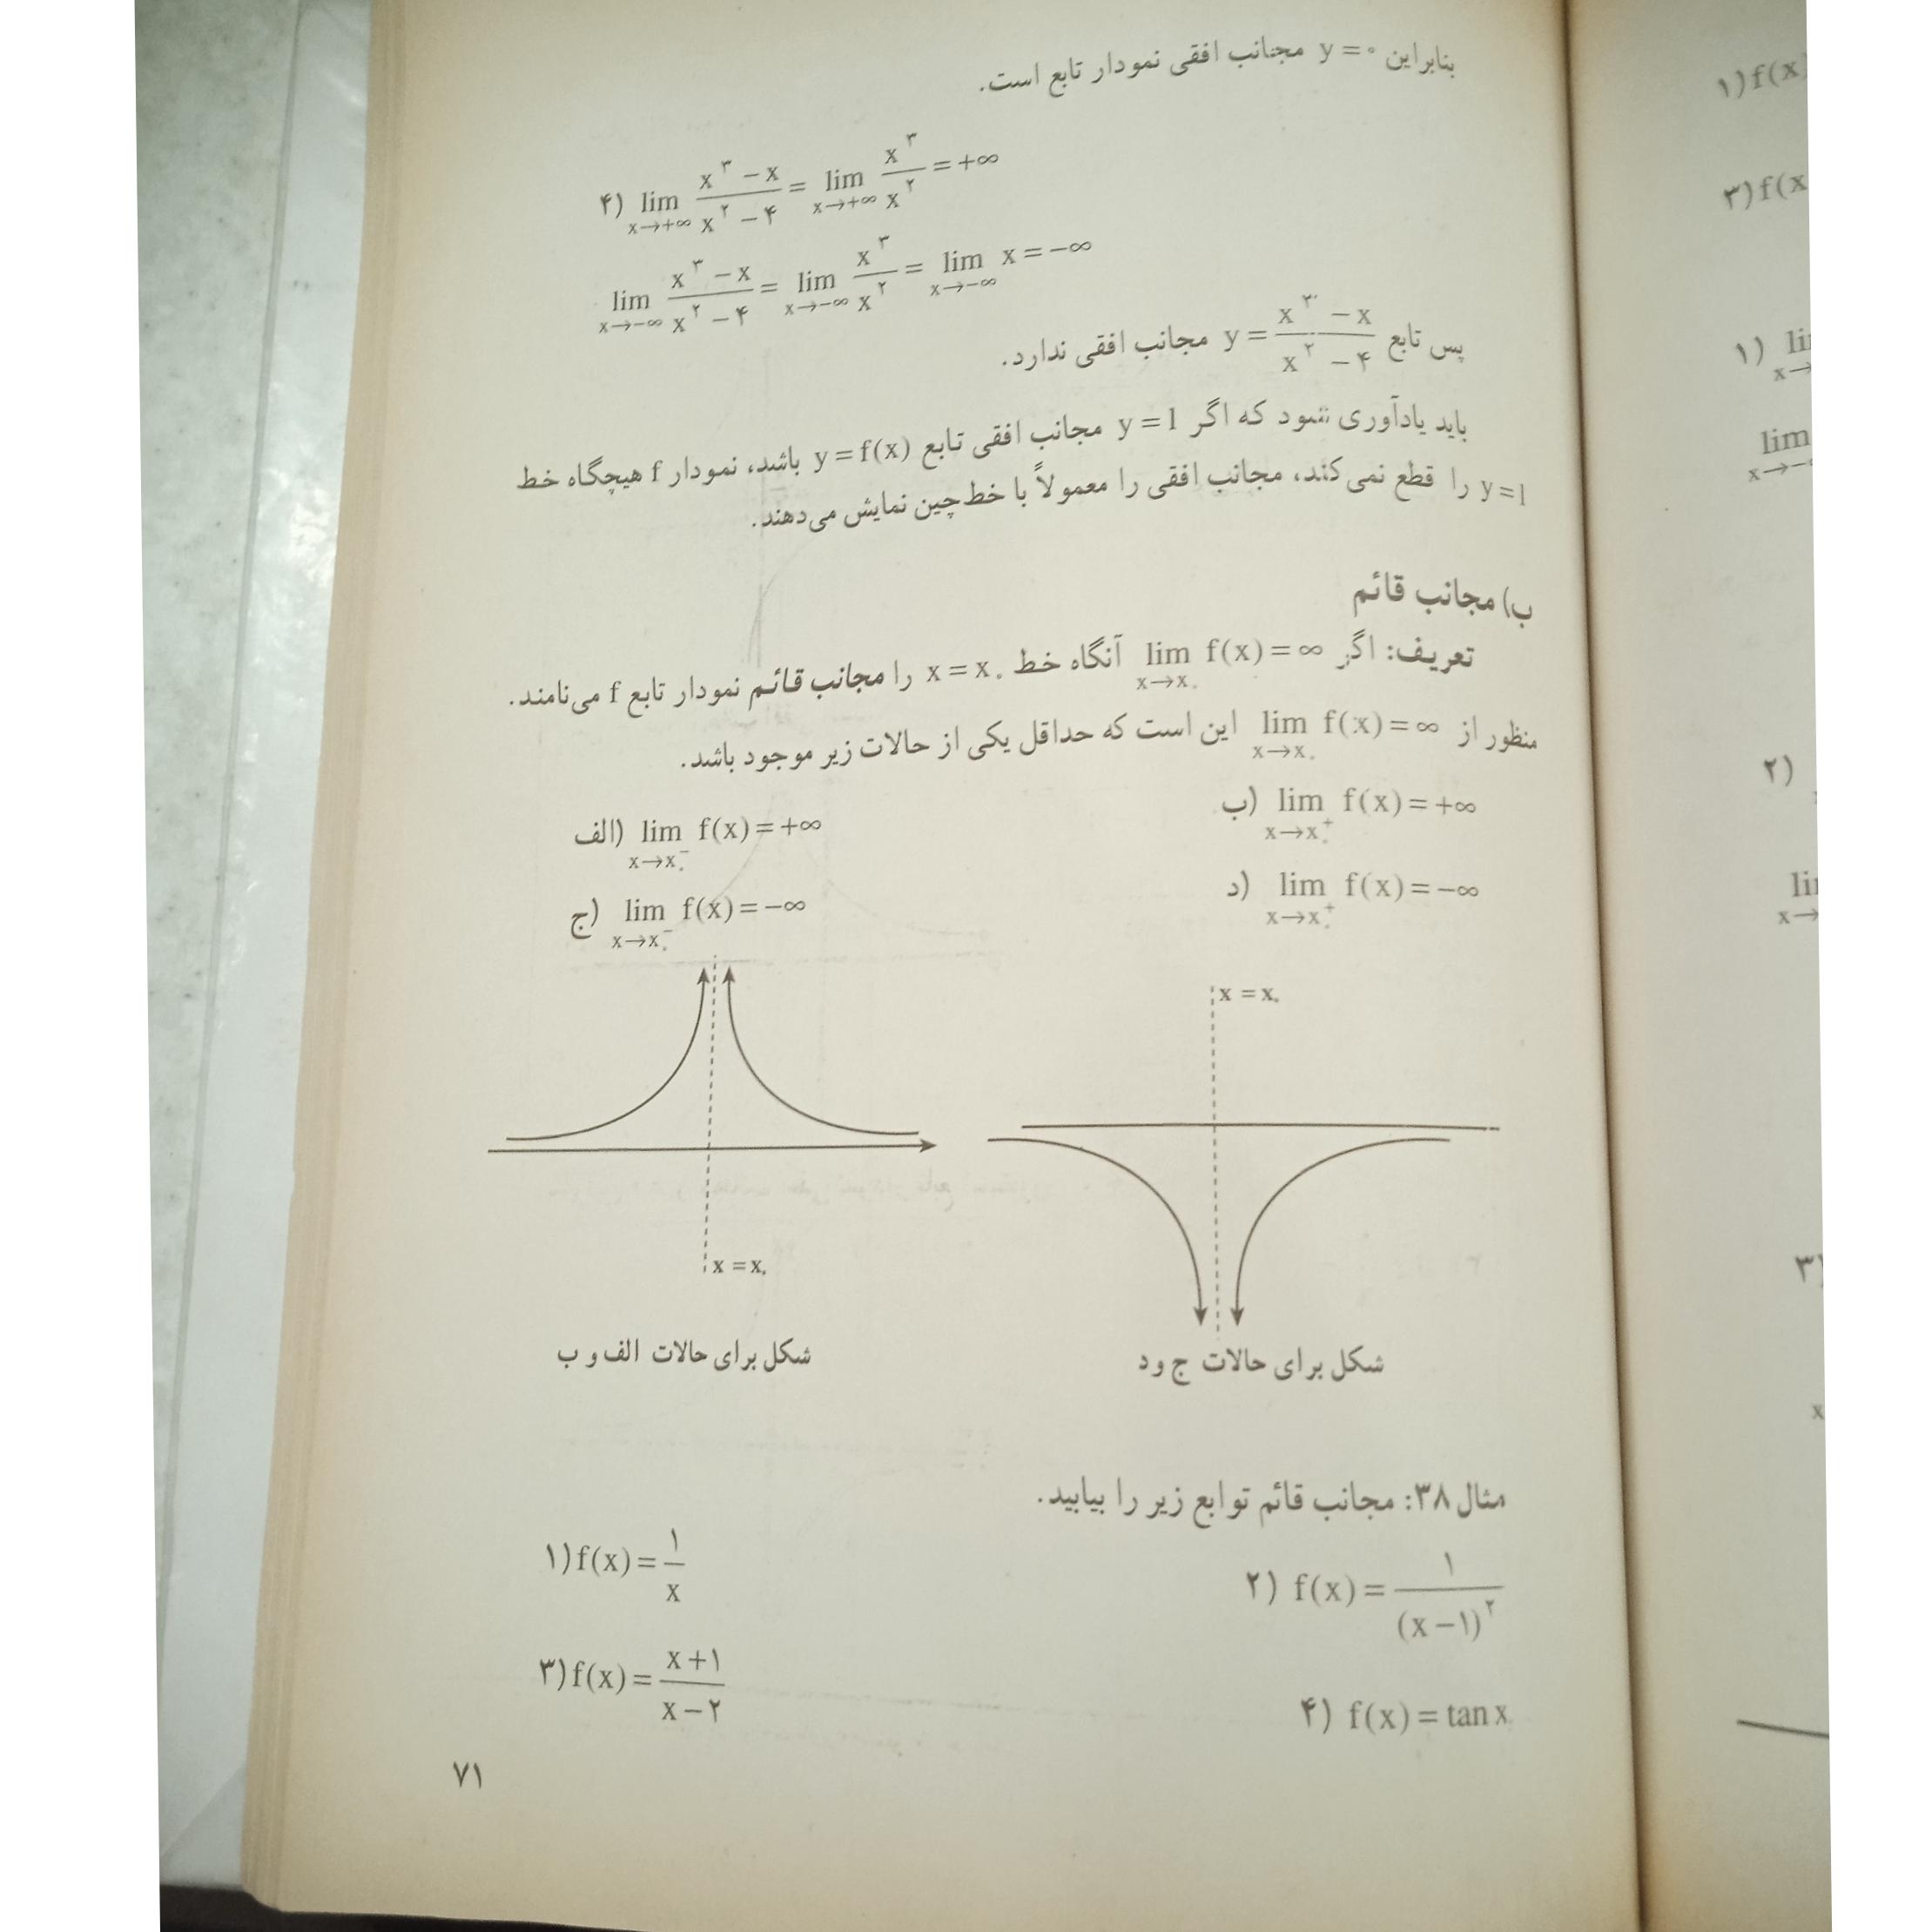 بنابراین y = ۰ مجانب افقی نمودار تابع است.
۴) lim x→+∞ (x^۳ − x)/(x^۲ − ۴) = lim x→+∞ x^۳/x^۲ = +∞
lim x→−∞ (x^۳ − x)/(x^۲ − ۴) = lim x→−∞ x^۳/x^۲ = lim x→−∞ x = −∞
پس تابع y = (x^۳ − x)/(x^۲ − ۴) مجانب افقی ندارد.
باید یادآوری شود که اگر y = l مجانب افقی تابع y = f(x) باشد، نمودار f هیچگاه خط
y = l را قطع نمی‌کند، مجانب افقی را معمولاً با خط‌چین نمایش می‌دهند.
ب) مجانب قائم
تعریف: اگر lim x→x۰ f(x) = ∞ آنگاه خط x = x۰ را مجانب قائم نمودار تابع f می‌نامند.
منظور از lim x→x۰ f(x) = ∞ این است که حداقل یکی از حالات زیر موجود باشد.
الف) lim x→x۰^− f(x) = +∞
ب) lim x→x۰^+ f(x) = +∞
ج) lim x→x۰^− f(x) = −∞
د) lim x→x۰^+ f(x) = −∞
x = x۰
x = x۰
شکل برای حالات الف و ب
شکل برای حالات ج و د
مثال ۳۸: مجانب قائم توابع زیر را بیابید.
۱) f(x) = ۱/x
۲) f(x) = ۱/(x − ۱)^۲
۳) f(x) = (x + ۱)/(x − ۲)
۴) f(x) = tan x
۷۱
۱) f(x)
۳) f(x
۱) li
x→
lim
x→−
۲)
li
x→
۳)
x